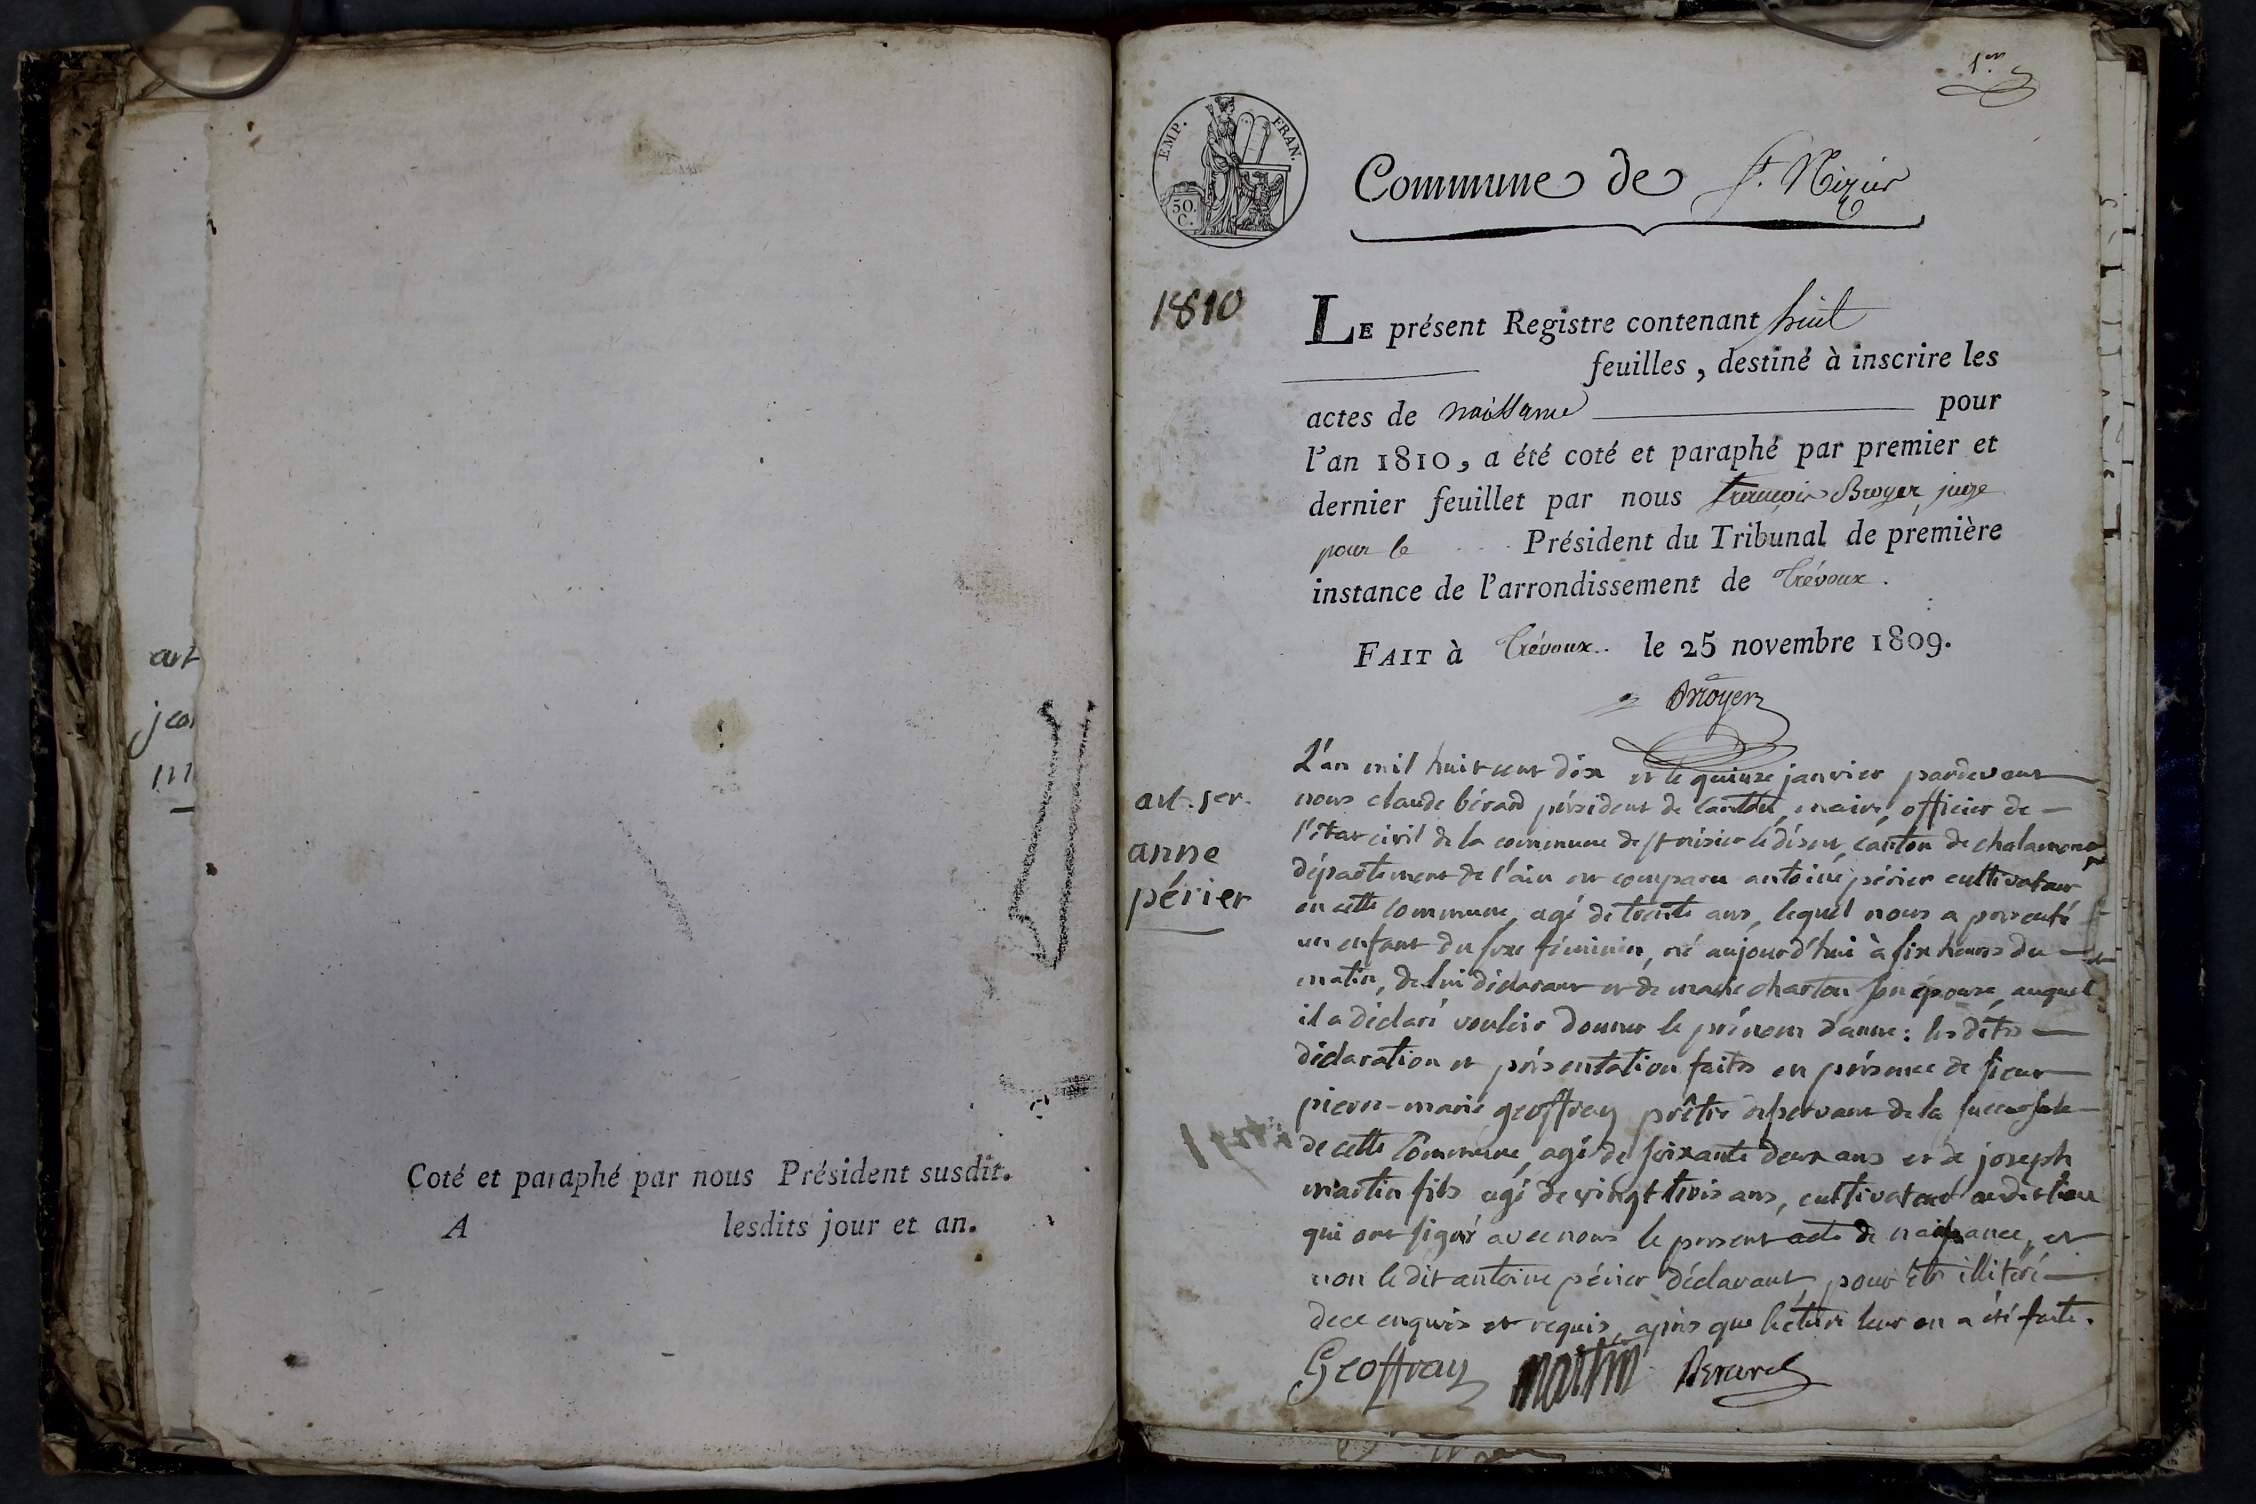 art
jea
m
Coté et paraphé par nous Président susdit.
A lesdits jour et an.
1er
EMP. FRAN.
50.
C.
Commune de St. Nizier
1810
LE présent Registre contenant huit
feuilles, destiné à inscrire les
actes de naissance pour
l'an 1810, a été coté et paraphé par premier et
dernier feuillet par nous françois Broyer juge
pour le Président du Tribunal de première
instance de l'arrondissement de Trévoux.
FAIT à Trévoux.. le 25 novembre 1809.
Broyer
art. 1er.
anne
périer
L'an mil huit cent dix et le quinze janvier pardevant
nous claude bérard président de canton, maire, officier de
l'état civil de la commune de st nisier le désert, canton de chalamont
département de l'ain est comparu antoine périer cultivateur
en cette commune, agé de trente ans, lequel nous a présenté
un enfant du sexe féminin, né aujourd'hui à six heures du
matin, de lui déclarant et de marie charton son épouse, auquel
il a déclaré vouloir donner le prénom d'anne: les dites
déclaration et présentation faites en présence de sieur
pierre-marie geoffray prêtre desservant de la succursale
de cette commune, agé de soixante deux ans et de joseph
martin fils agé de vingt trois ans, cultivateur au dit lieu
qui ont signé avec nous le présent acte de naissance, et
non le dit antoine périer déclarant, pour être illitéré
de ce enquis et requis, après que lecture leur en a été faite.
Geoffray martin Berard